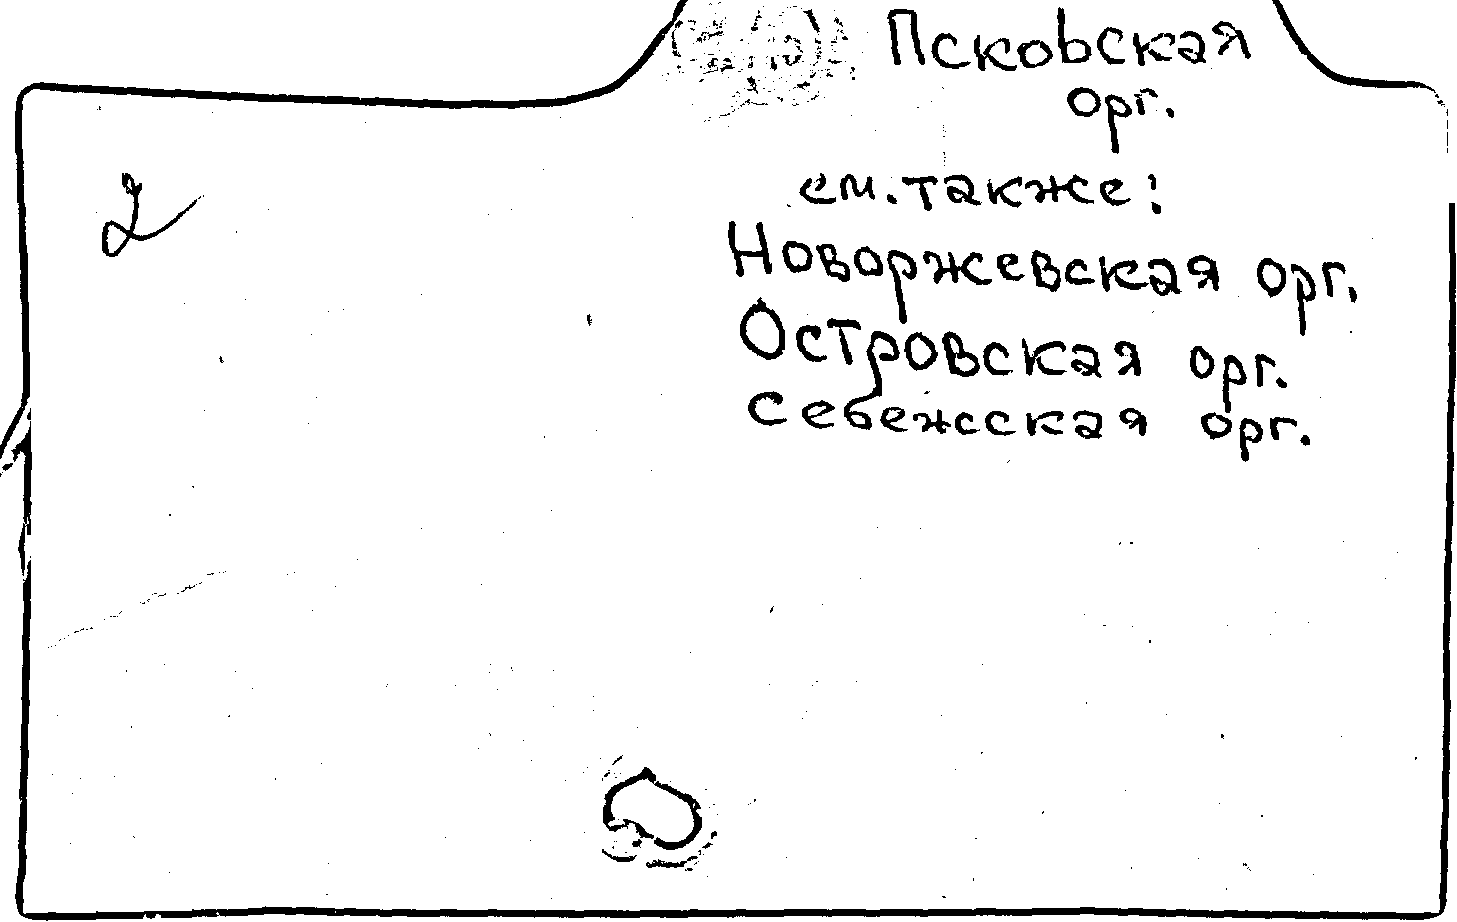 Псковская
орг.
2
см. также:
Новоржевская орг.
Островская орг.
Себежсская орг.